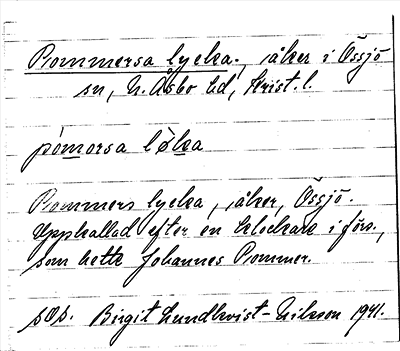 Pommersa lycka, åker i Össjö
sn, N. Åsbo hd, Krist. l.
pómorsa lø̀ka
Pommers lycka, åker, Össjö.
Uppkallad efter en klockare i förs.,
som hette Johannes Pommer.
Birgit Lundkvist-Nilsson 1941.